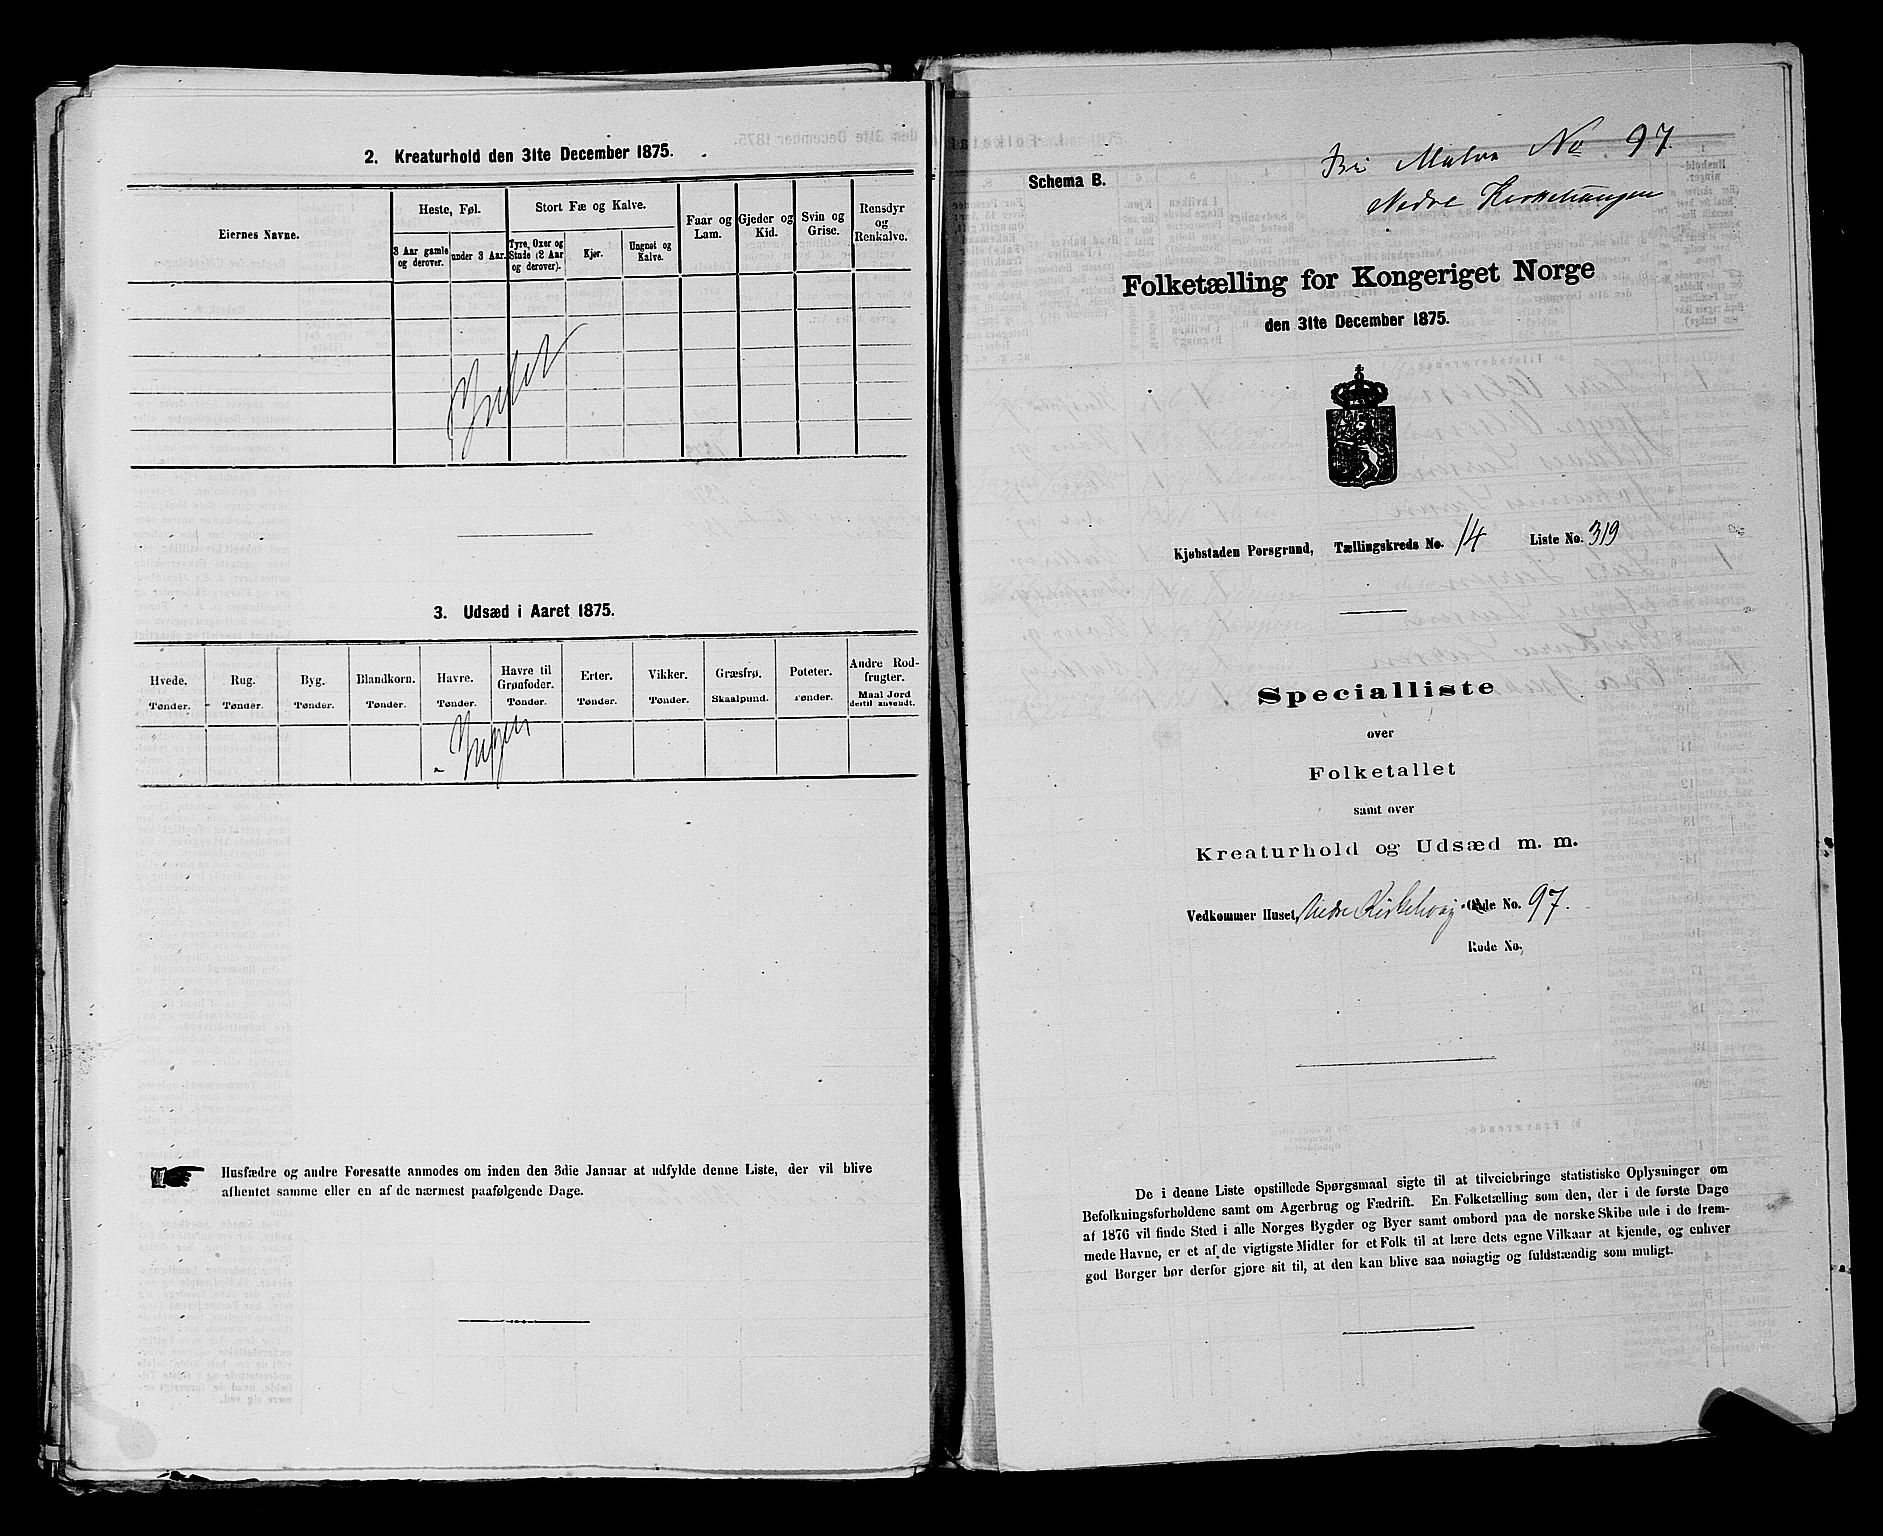 2. Kreaturhold den 31te December 1875.
Eiernes Navne.
Heste, Føl.
Stort Fæ og Kalve.
Faar og Lam.
Gjeder og Kid.
Svin og Grise.
Rensdyr og Renkalve.
3 Aar gamle og derover.
under 3 Aar.
Tyre, Oxer og Stude (2 Aar og derover).
Kjør.
Ungnøt og Kalve.
Intet
3. Udsæd i Aaret 1875.
Hvede. Rug. Byg. Blandkorn. Havre. Havre til Grønfoder. Erter. Vikker. Græsfrø. Poteter. Andre Rodfrugter.
Tønder. Tønder. Tønder. Tønder. Tønder. Tønder. Tønder. Tønder. Skaalpund. Tønder. Maal Jord dertil anvendt.
Ingen
Husfædre og andre Foresatte anmodes om inden den 3die Januar at udfylde denne Liste, der vil blive
afhentet samme eller en af de nærmest paafølgende Dage.
Schema B.
No 97.
Nedre Kirkehaugen
Folketælling for Kongeriget Norge
den 31te December 1875.
Kjøbstaden Porsgrund, Tællingskreds No. 14 Liste No. 319
Specialliste
over
Folketallet
samt over
Kreaturhold og Udsæd m. m.
Vedkommer Huset, Nedre Kirkehoug No. 97.
Rode No.
De i denne Liste opstillede Spørgsmaal sigte til at tilveiebringe statistiske Oplysninger om
Befolkningsforholdene samt om Agerbrug og Fædrift. En Folketælling som den, der i de første Dage
af 1876 vil finde Sted i alle Norges Bygder og Byer samt ombord paa de norske Skibe ude i de frem-
mede Havne, er et af de vigtigste Midler for et Folk til at lære dets egne Vilkaar at kjende, og enhver
god Borger bør derfor gjøre sit til, at den kan blive saa nøiagtig og fuldstændig som muligt.